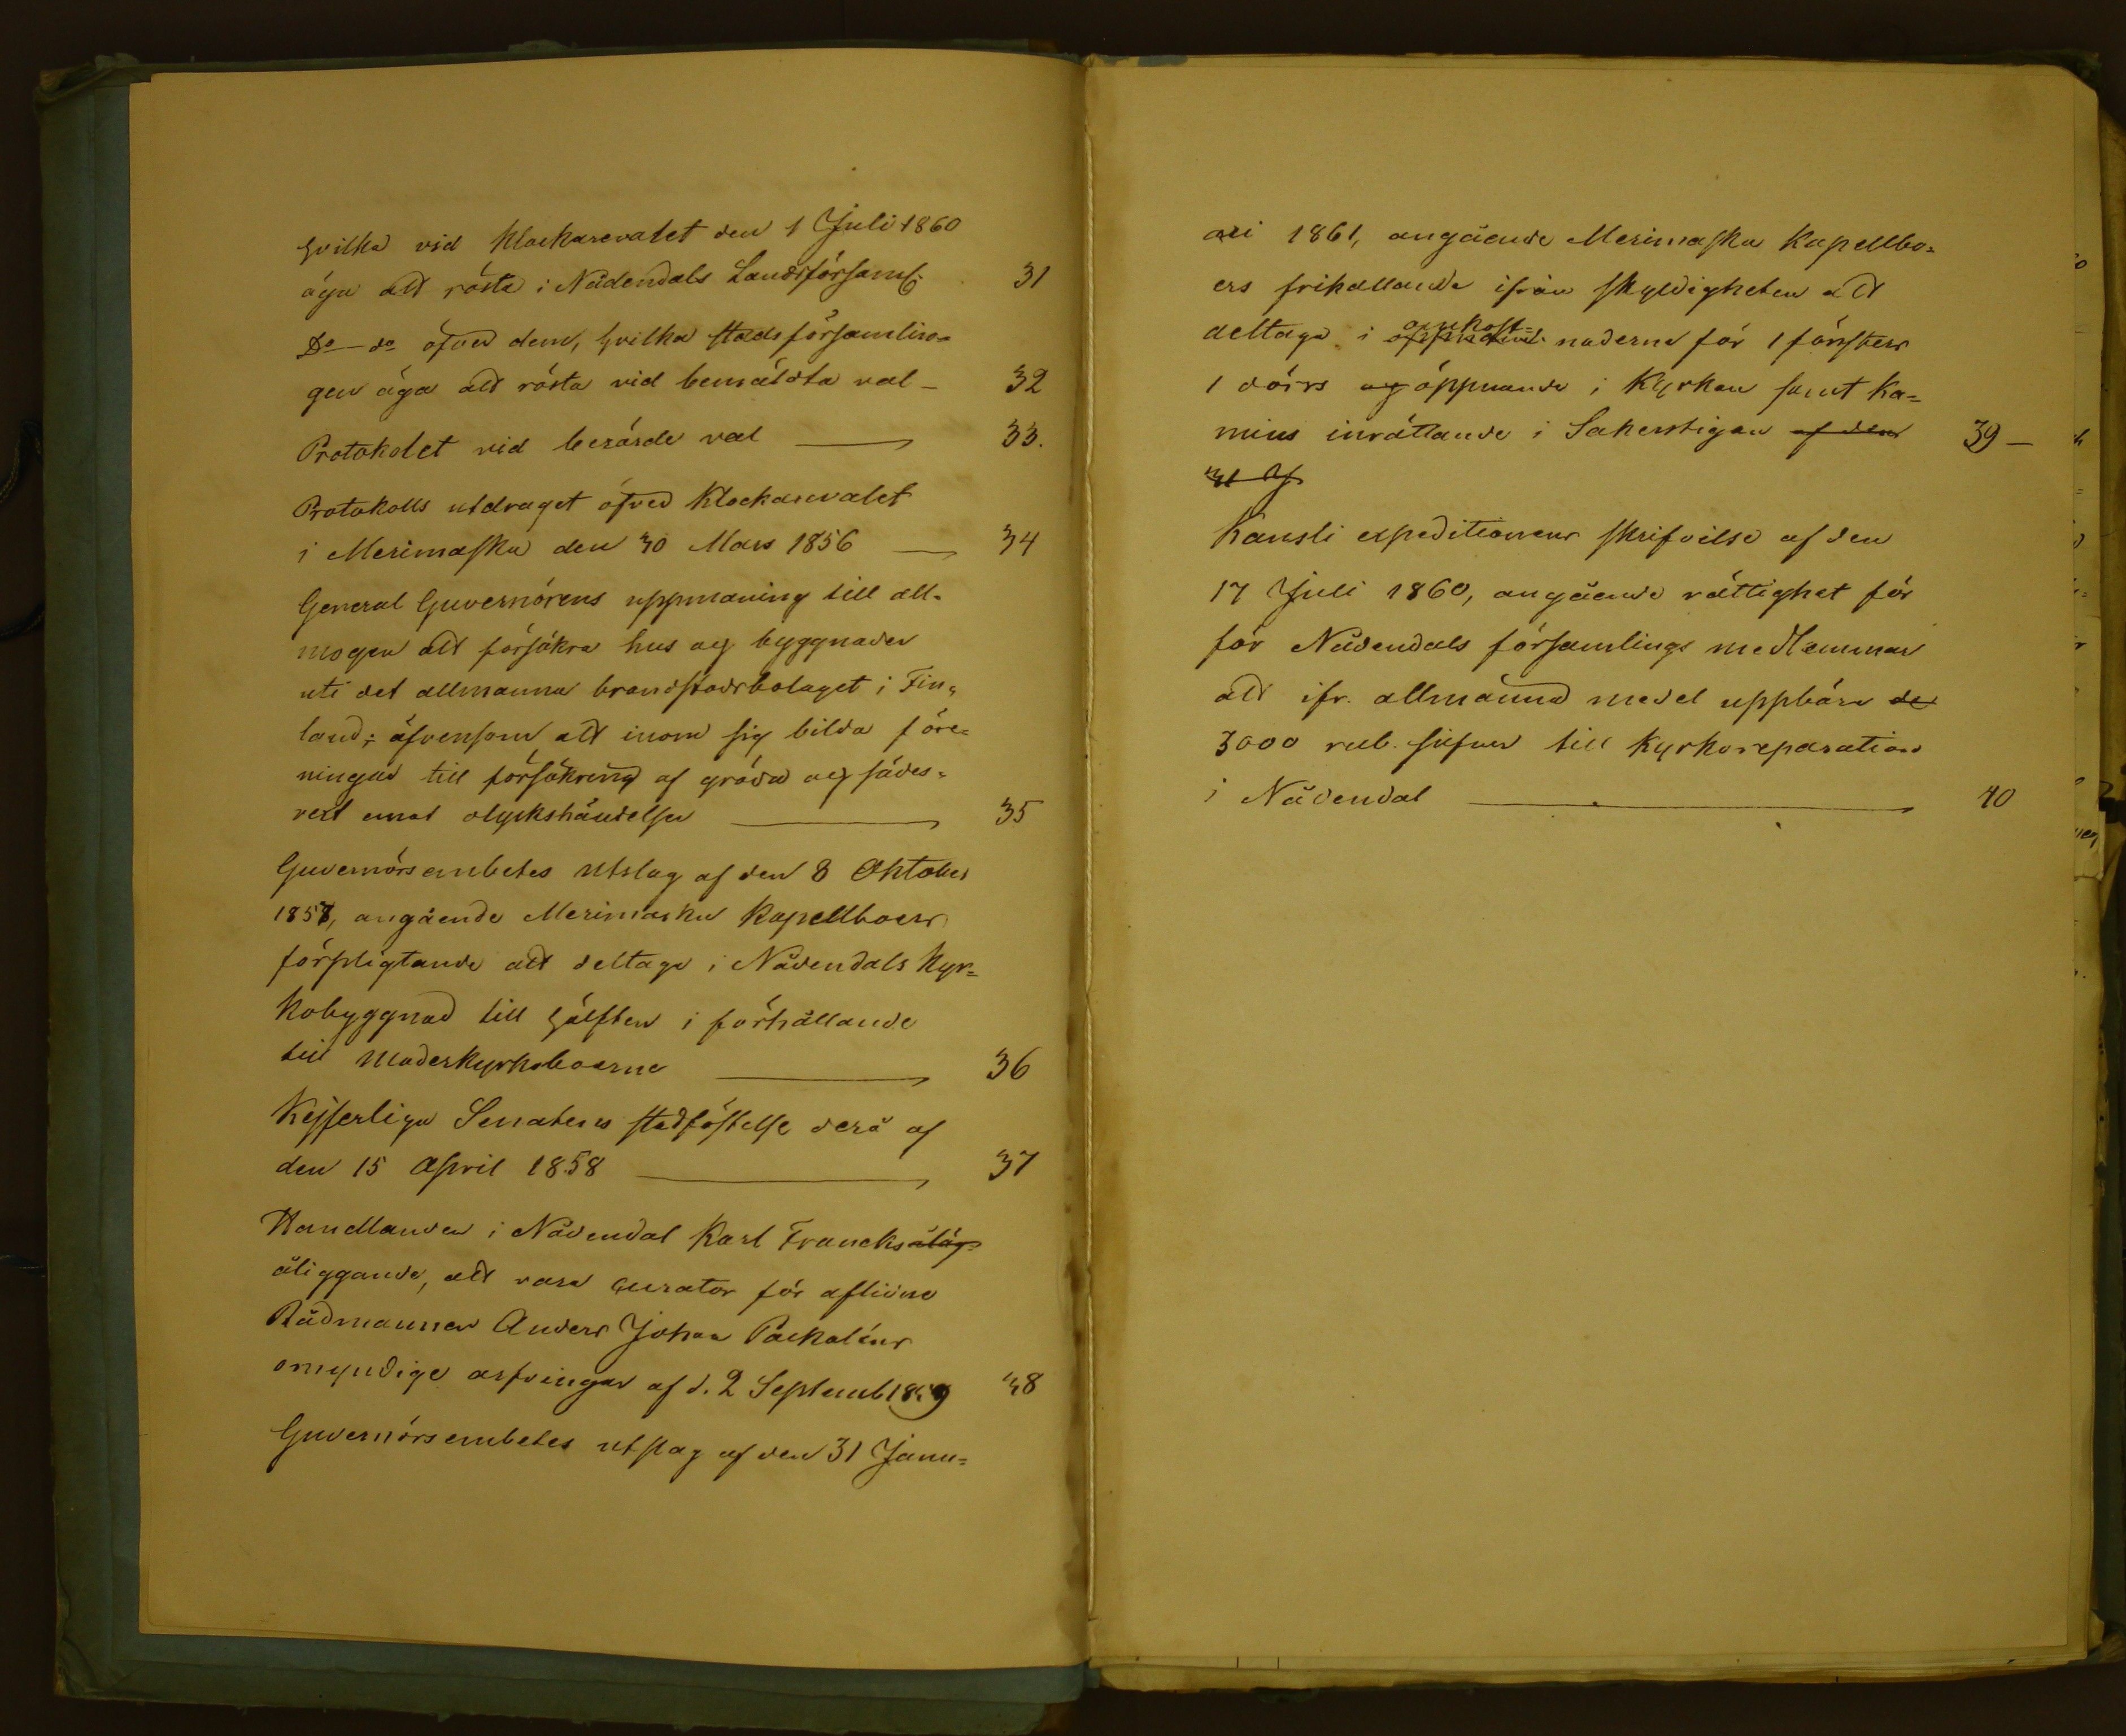 hvilka vid Klockarevalet den 1 Juli 1860
äga att rösta i Nådendals Landsförsaml. 31
Do do öfver dem, hvilka stadsförsamlin-
gen äga att rösta vid bemäldta val – 32
Protokolet vid berörde val — 33.
Protokolls utdraget öfver Klockarevalet
i Merimasku den 30 Mars 1856 — 34
General Guvernörens uppmaning till all-
mogen att försäkra hus och byggnader
uti det allmänna brandstodsbolaget i Fin-
land; äfvensom att inom sig bilda före-
ningar till försäkring af gröda och sädes-
vext emot olyckshändelser — 35
Guvernörsembetes utslag af den 8 Oktober
1857, angående Merimasku Kapellboers
förpligtande att deltaga i Nådendals Kyr=
kobyggnad till hälften i förhållande
till Moderkyrkoboerne — 36
Kejserliga Senatens stadfästelse derå af
den 15 April 1858 — 37
Handlanden i Nådendal Karl Francks åläg-
åliggande, att vara Curator för aflidne
Rådmannen Anders Johan Packaléns
omyndige arfvingar af d. 2 Septemb 1859 38
Guvernörsembetes utslag af den 31 Janu=
ari 1861, angående Merimasku Kapellbo=
ers frikallande ifrån skyldigheten att
deltaga i omkost=
naderna för 1 fönsters
1 dörrs og öppnande i Kyrkan samt Ka=
mins inrättande i Sakerstigan af den 39 –
31 Af
Kansli expeditionens skrifvilse af den
17 Juli 1860, angående rättighet för
för Nådendals församlings medlemmar
att ifr. allmänna medel uppbära de
3000 rub. silfver till Kyrkoreparation
i Nådendal — 40